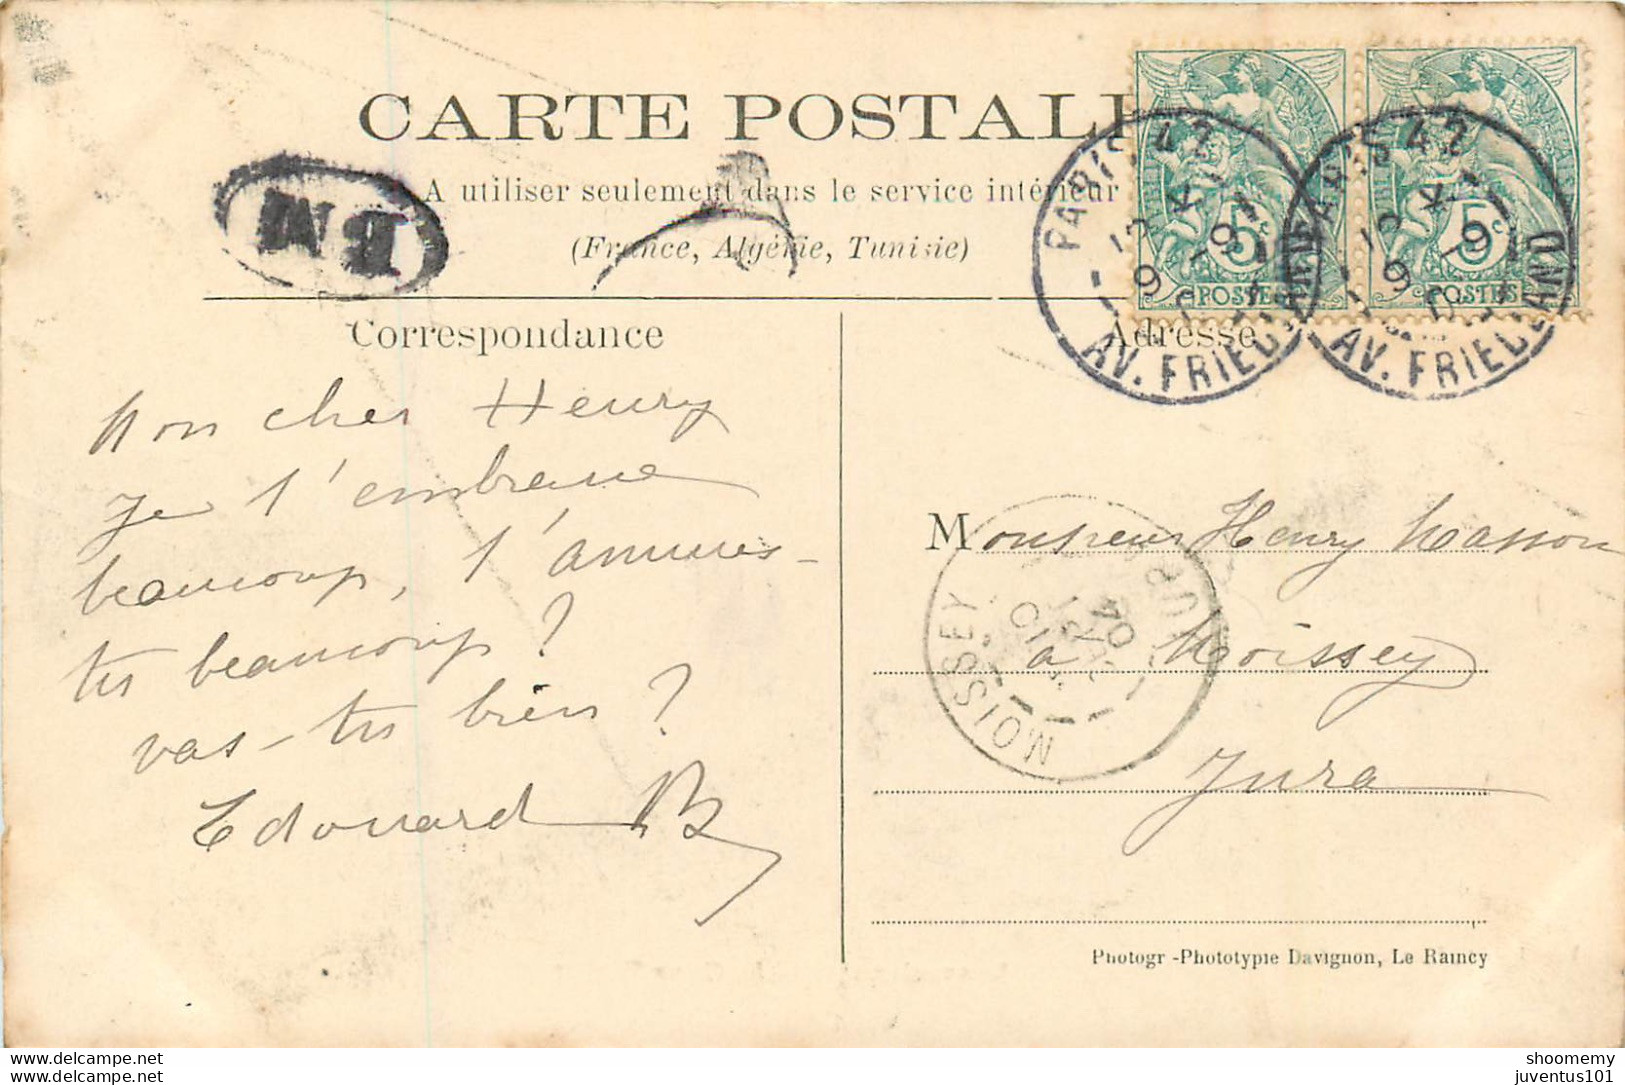 CARTE POSTAL
A utiliser seulement dans le service intérieur
(France, Algérie, Tunisie)
BM
PARIS 42
AV. FRIEDLAND
5c
POSTES
PARIS 42
AV. FRIEDLAND
5c
POSTES
Correspondance
Adresse
Mon cher Henry
Je t'embrasse
beaucoup, t'amuses-
tu beaucoup ?
vas-tu bien ?
Edouard B
Monsieur Henry Masson
à Moissey
Jura
MOISSEY
JURA
04
Photogr-Phototypie Davignon, Le Raincy
www.delcampe.net
www.delcampe.net
shoomemy
juventus101